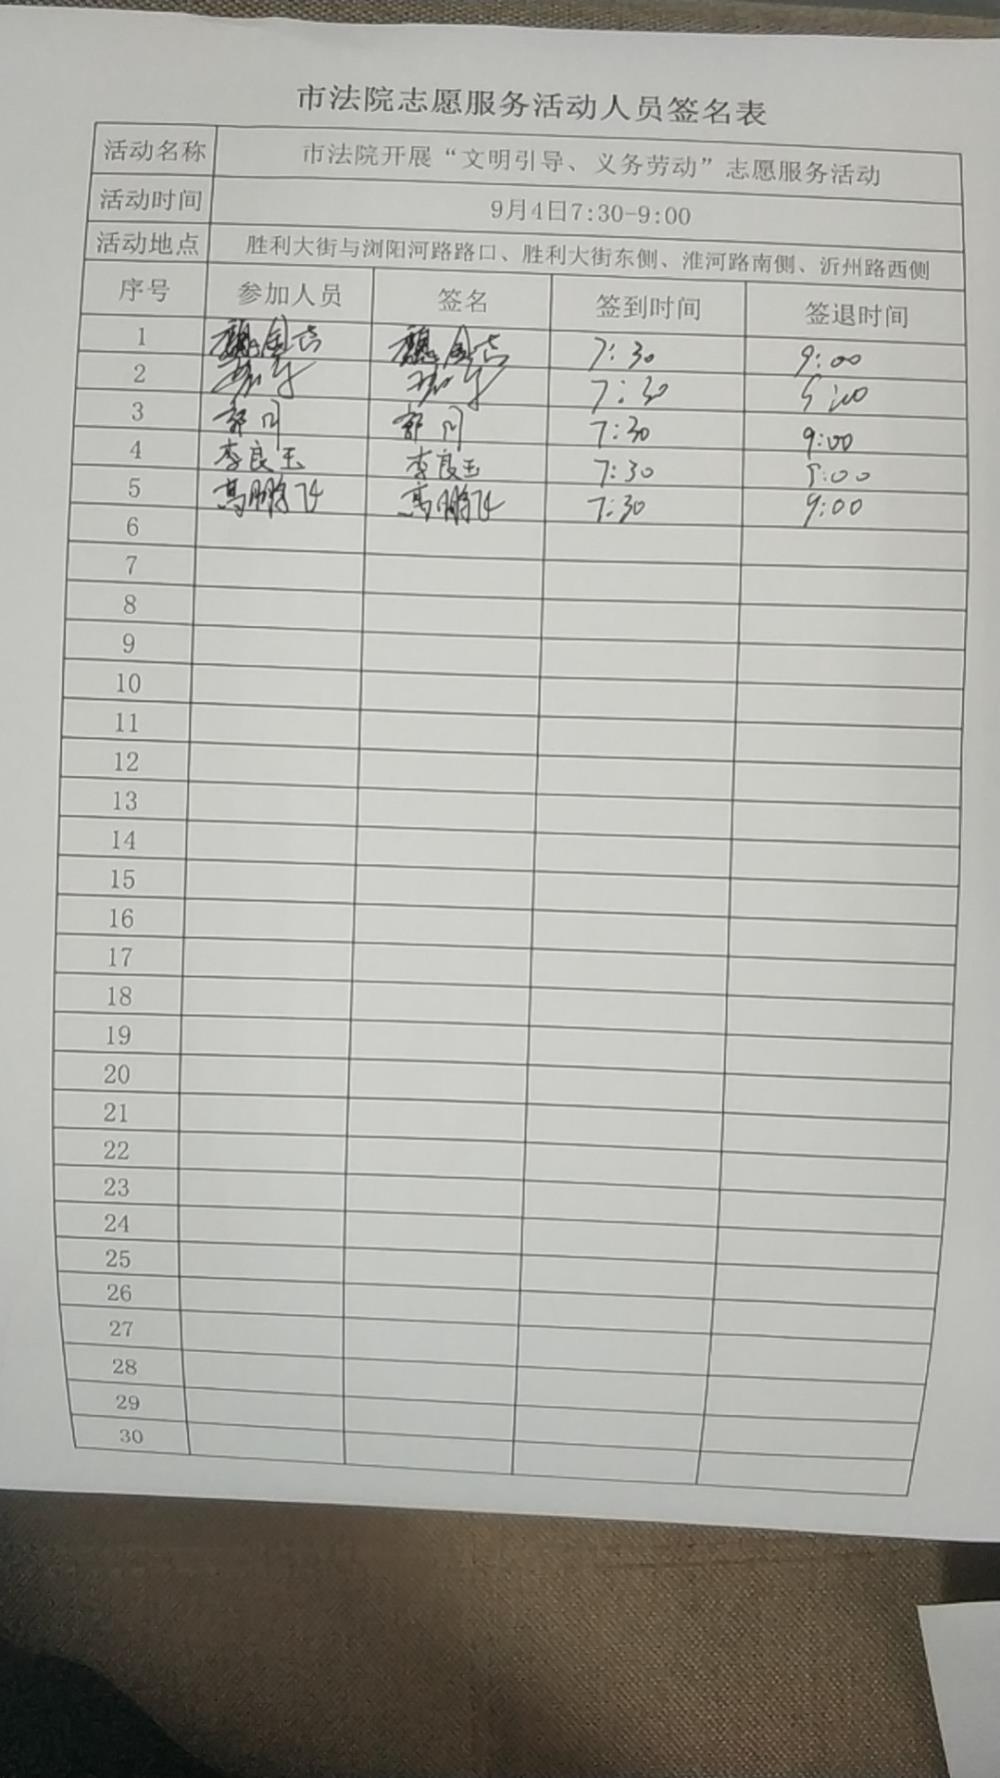 市法院志愿服务活动人员签名表
活动名称 市法院开展“文明引导、义务劳动”志愿服务活动
活动时间 9月4日7:30-9:00
活动地点 胜利大街与浏阳河路路口、胜利大街东侧、淮河路南侧、沂州路西侧
序号 参加人员 签名 签到时间 签退时间
1 7:30 9:00
2 7:30 9:00
3 7:30 9:00
4 李良玉 李良玉 7:30 9:00
5 高鹏飞 高鹏飞 7:30 9:00
6
7
8
9
10
11
12
13
14
15
16
17
18
19
20
21
22
23
24
25
26
27
28
29
30